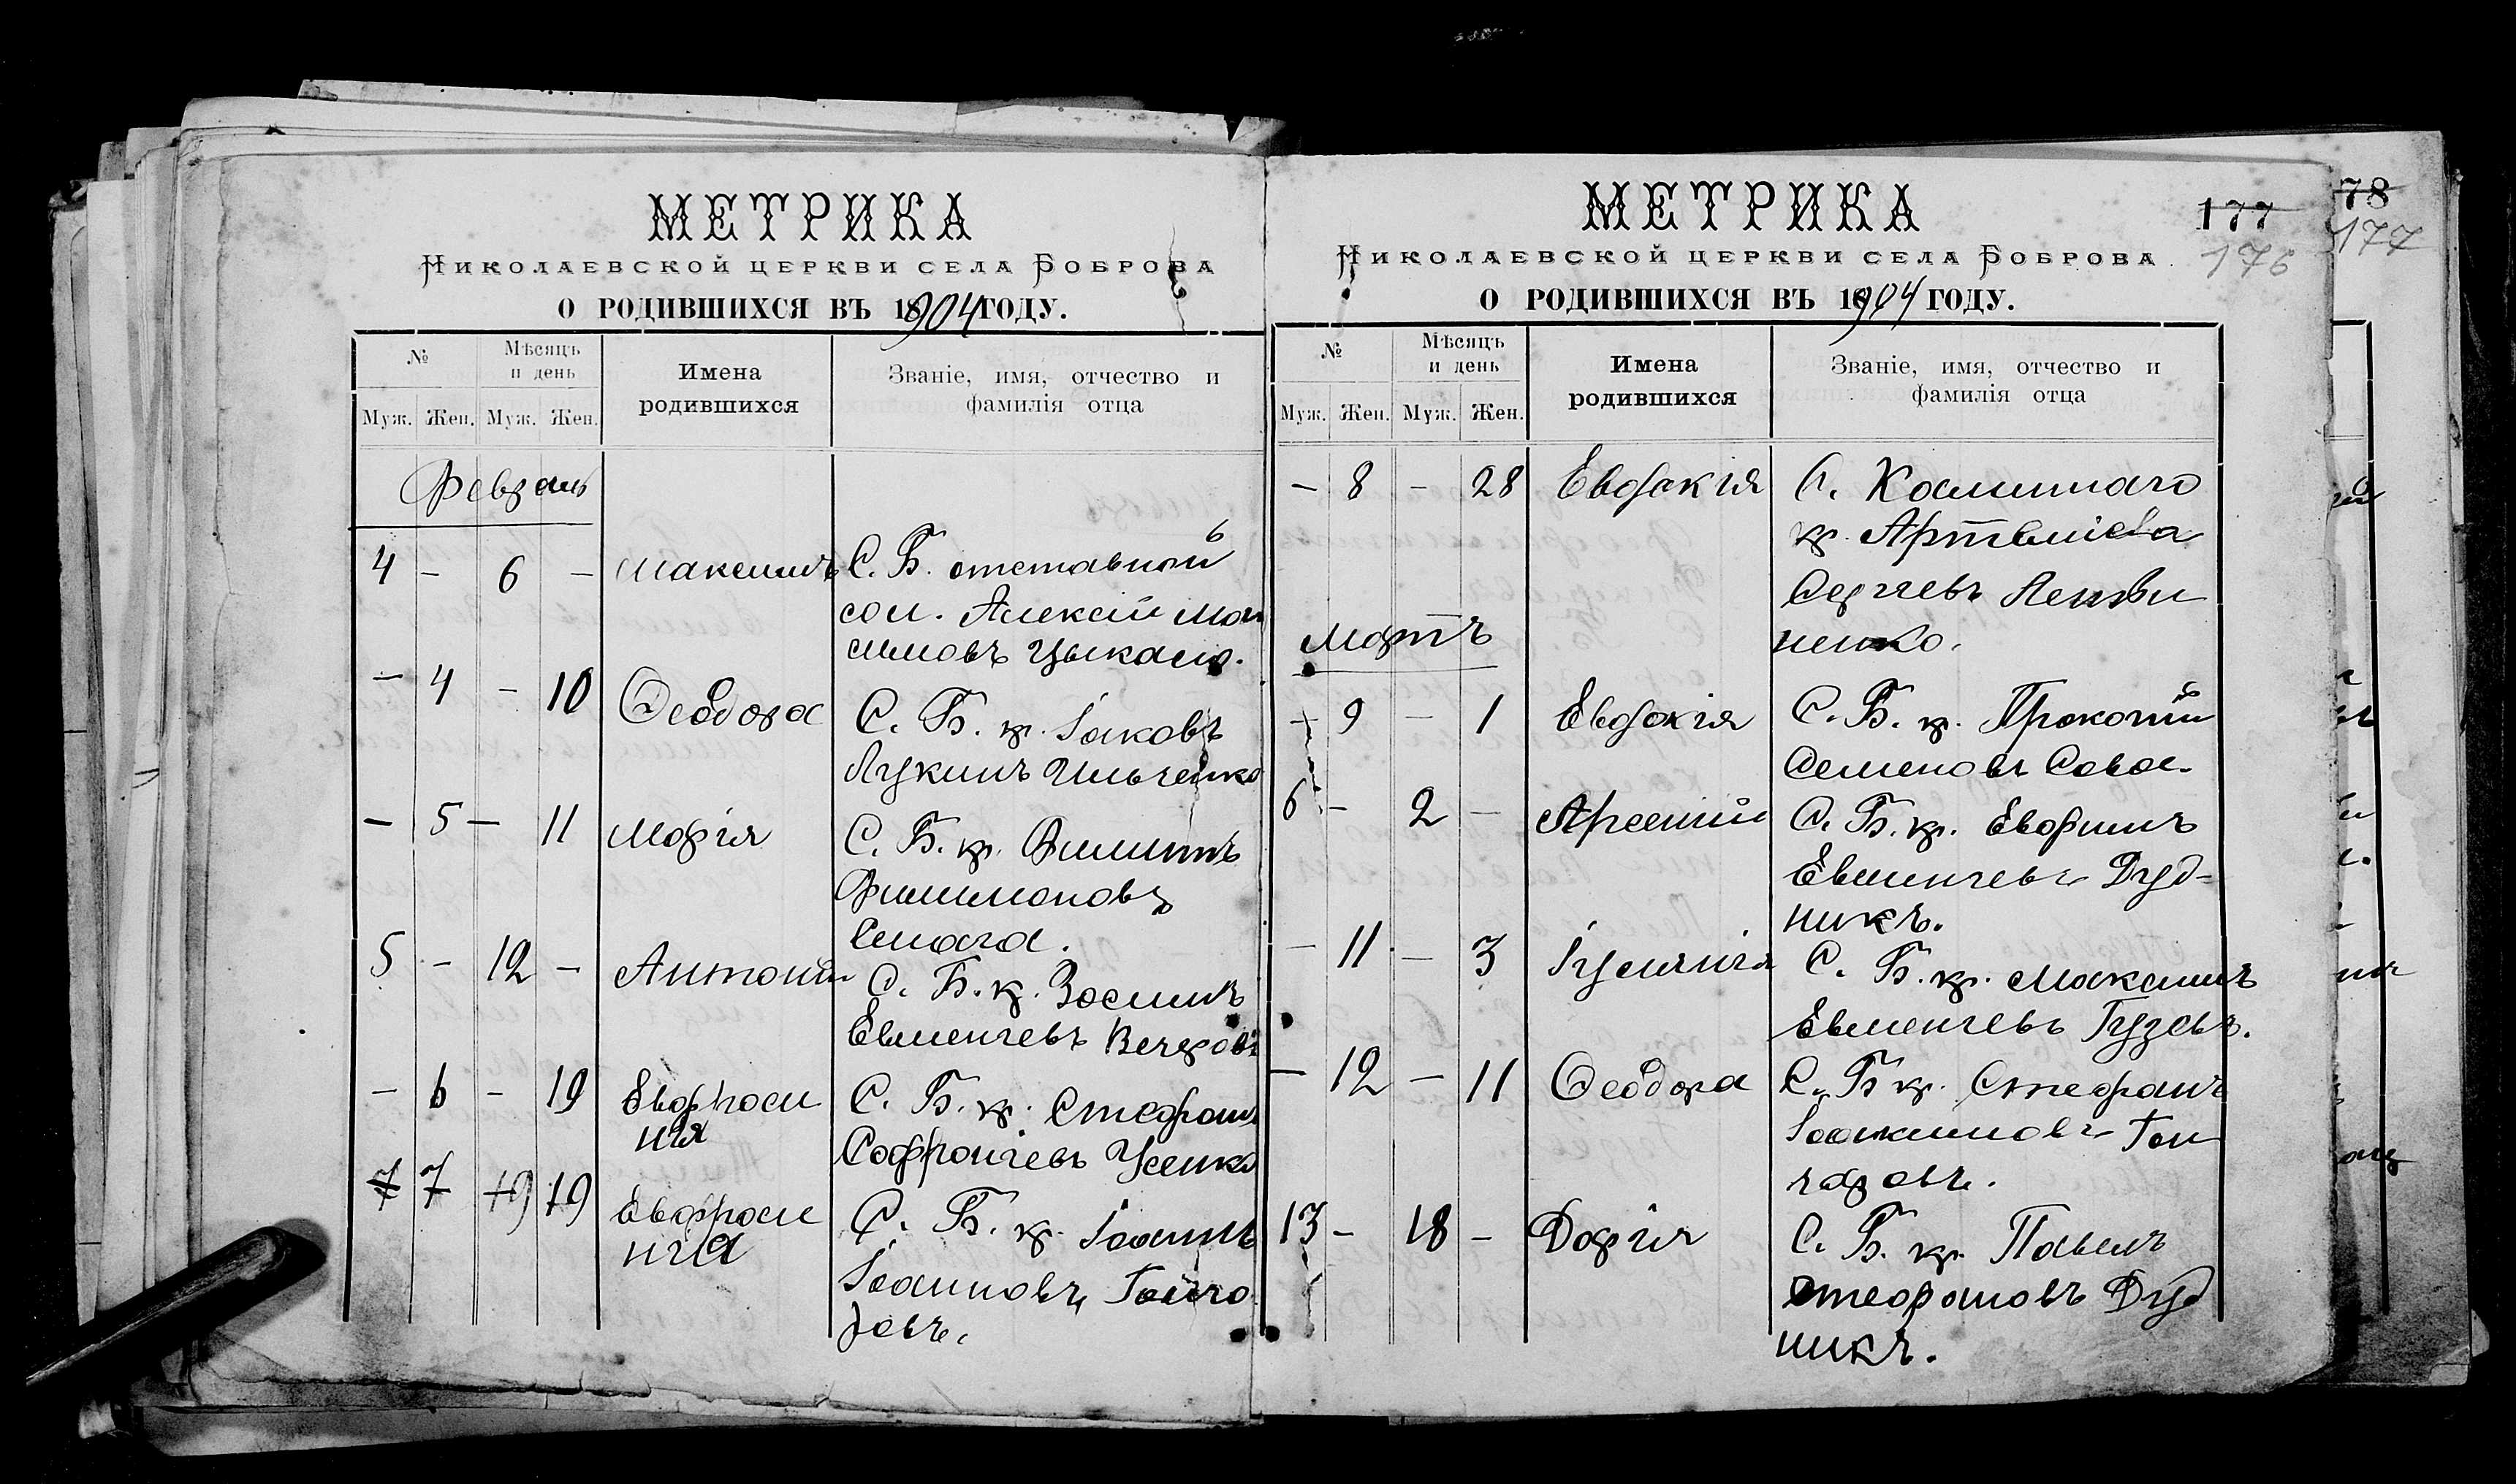 МЕТРИКА
НИКОЛАЕВСКОЙ ЦЕРКВИ СЕЛА БОБРОВА
О РОДИВШИХСЯ ВЪ 1904 ГОДУ.
№
Мѣсяцъ и день
Имена родившихся
Званіе, имя, отчество и фамилія отца
Муж. Жен. Муж. Жен.
Февраль
4 – 6 – Максимъ С. Б. отставной
сол. Алексій Мак
симовъ Цыкало.
– 4 – 10 Ѳеодора С. Б. кр. Іаковъ
Лукинъ Ильченко
– 5 – 11 Марія С. Б. кр. Филиппъ
Филимоновъ
5 – 12 – Антоній С. Б. кр. Зосимъ
Евменіевъ
– 6 – 19 Евфроси С. Б. кр. Стефанъ
нія Софроніевъ Усенко
7 7 19 19 Евфроси С. Б. кр. Іоаннъ
нія Іоанновъ Гонча
ровъ.
МЕТРИКА
177
176
НИКОЛАЕВСКОЙ ЦЕРКВИ СЕЛА БОБРОВА
О РОДИВШИХСЯ ВЪ 1904 ГОДУ.
№
Мѣсяцъ и день
Имена родившихся
Званіе, имя, отчество и фамилія отца
Муж. Жен. Муж. Жен.
– 8 – 28 Евдокія С.
кр.
Сергіевъ
ненко.
Мартъ
– 9 – 1 Евдокія С. Б. кр. Прокопій
Семеновъ Сова.
6 – 2 – Арсеній С. Б. кр. Евфимъ
Евменіевъ Дуд-
никъ.
– 11 – 3 Іуліанія С. Б. кр. Максимъ
Евменіевъ Гузевъ.
– 12 – 11 Ѳеодора С. Б. кр. Стефанъ
Іоакимовъ Гон
чаровъ.
13 – 18 – Дарія С. Б. кр. Павелъ
Стефановъ Дуд
никъ.
78
177